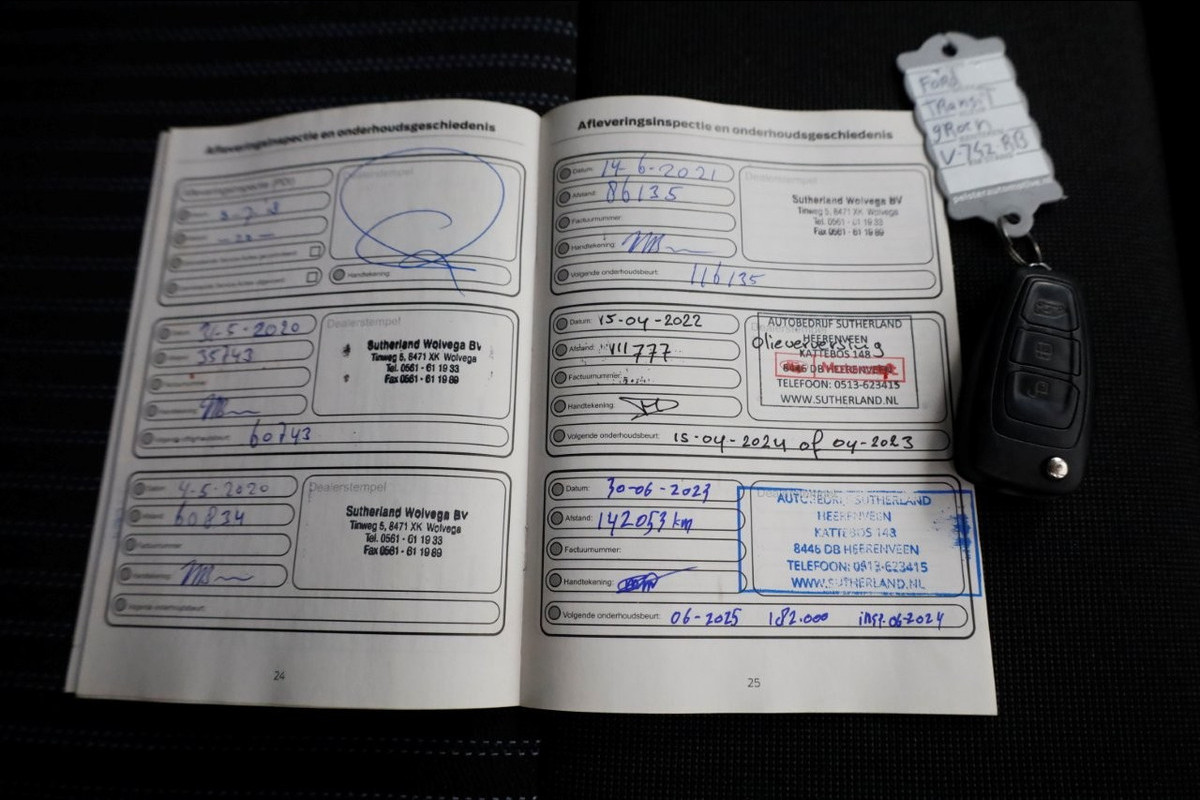 Afleveringsinspectie en onderhoudsgeschiedenis
Afleveringsinspectie (PDI)
Dealerstempel
Handtekening:
31-5-2020
35743
Dealerstempel
Sutherland Wolvega BV
Tinweg 5, 8471 XK Wolvega
Tel. 0561 - 61 19 33
Fax 0561 - 61 19 89
60743
Datum:
4-5-2020
60834
Factuurnummer:
Handtekening:
Dealerstempel
Sutherland Wolvega BV
Tinweg 5, 8471 XK Wolvega
Tel. 0561 - 61 19 33
Fax 0561 - 61 19 89
Volgende onderhoudsbeurt:
24
Afleveringsinspectie en onderhoudsgeschiedenis
Datum: 14 6-2021
Afstand: 86135
Factuurnummer:
Handtekening:
Dealerstempel
Sutherland Wolvega BV
Tinweg 5, 8471 XK Wolvega
Tel. 0561 - 61 19 33
Fax 0561 - 61 19 89
Volgende onderhoudsbeurt: 116135
Datum: 15-04-2022
Afstand: 111777
Factuurnummer:
Handtekening:
AUTOBEDRIJF SUTHERLAND
HEERENVEEN
Olieverversing
KATTEBOS 148
8446 DB HEERENVEEN
TELEFOON: 0513-623415
WWW.SUTHERLAND.NL
Volgende onderhoudsbeurt: 15-04-2024 of 04-2023
Datum: 30-06-2023
Afstand: 142053 km
Factuurnummer:
Handtekening:
AUTOBEDRIJF SUTHERLAND
HEERENVEEN
KATTEBOS 148
8446 DB HEERENVEEN
TELEFOON: 0513-623415
WWW.SUTHERLAND.NL
Volgende onderhoudsbeurt: 06-2025 182.000 insp. 06-2024
25
Ford
Transit
groen
V-742-BB
pelsterautomotive.nl